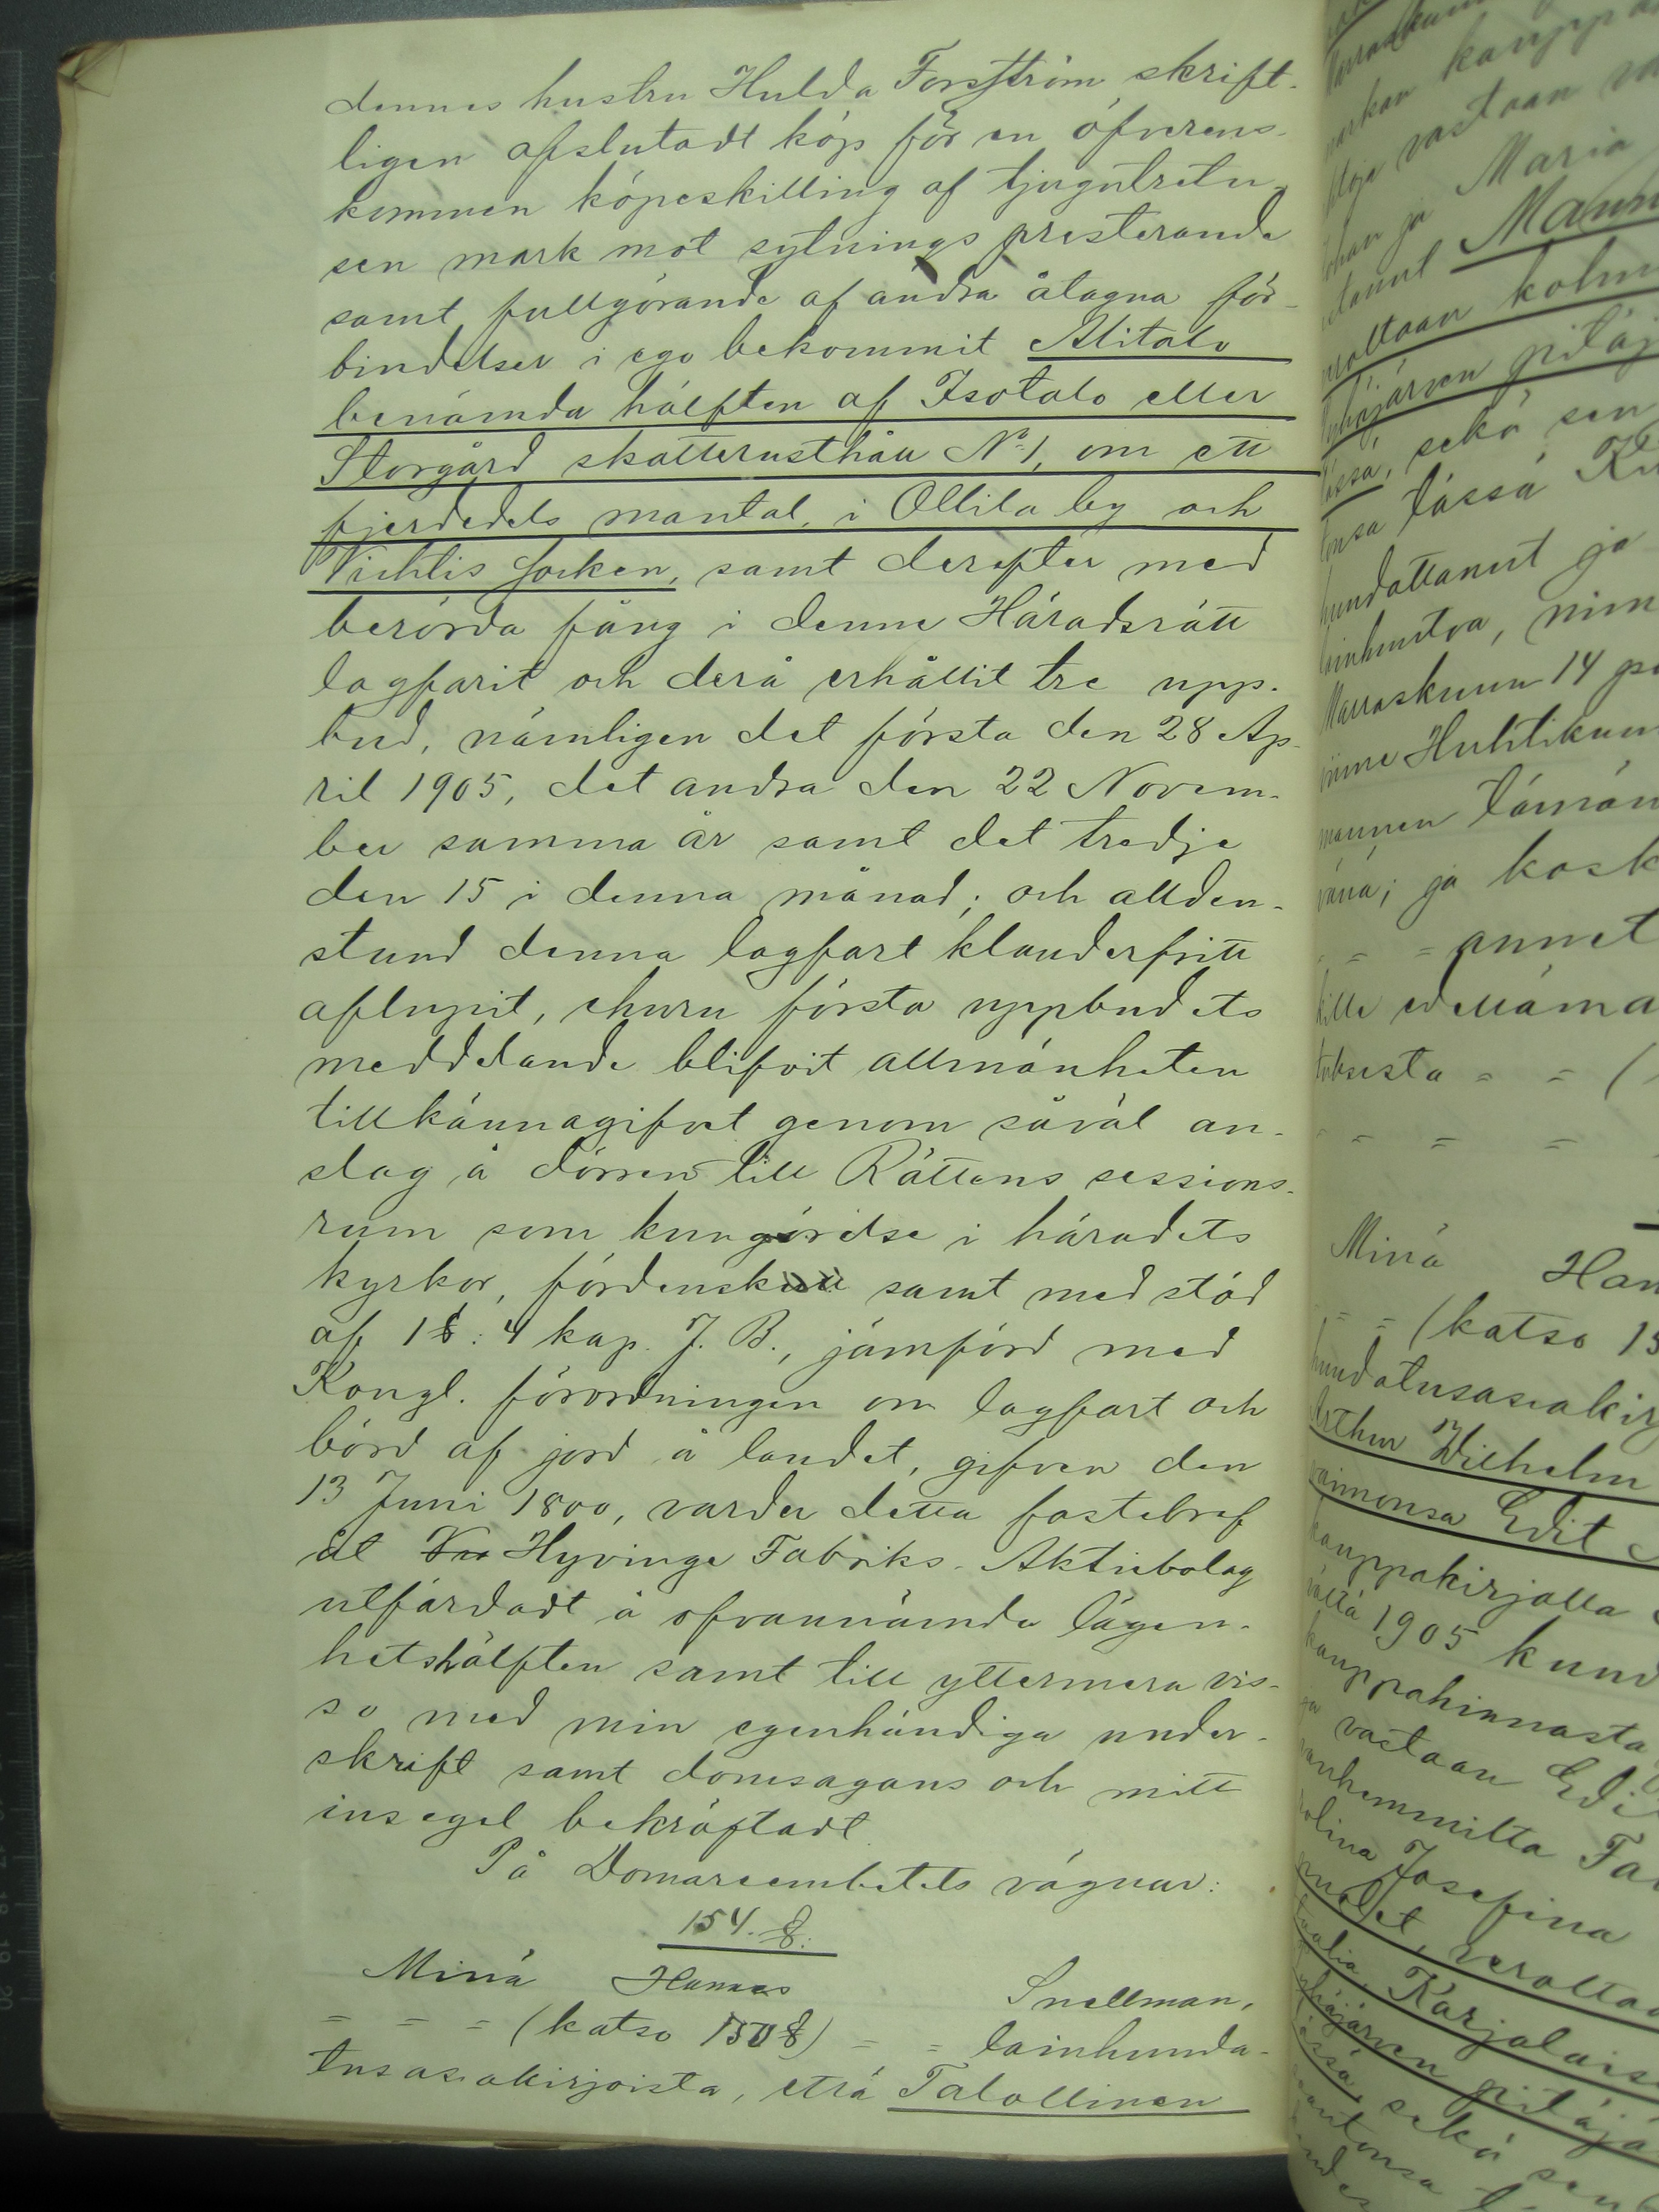 dennes hustru Hulda Forsström skrift-
ligen afslutadt köp för en öfverens-
kommen köpeskilling af tjugutretu-
sen mark mot sytnings presterande
samt fullgörande af andra åtagna för-
bindelser i ego bekommit Alitalo
benämda hälften af Isotalo eller
Storgård skatterusthåll No 1, om ett
fjerdedels mantal, i Ollila by och
Vichtis socken, samt derefter med
berörda fång i denne Häradsrätt
lagfarit och derå erhållit tre upp-
bud, nämligen det första den 28 Ap-
ril 1905, det andra den 22 Novem-
ber samma år samt det tredje
den 15 i denna månad; och allden-
stund denna lagfart klanderfritt
aflupit, ehuru första uppbudets
meddelande blifvit allmänheten
tillkännagifvet genom såväl an-
slag å dörren till Rättens sessions-
rum som kungörelse i häradets
kyrkor, fördenskull samt med stöd
af 1 §: 4 kap. J. B., jämförd med
Kongl. förordningen om lagfart och
börd af jord å landet, gifven den
13 Juni 1800, varder detta fastebref
åt Hyvinge Fabriks-Aktiebolag
utfärdadt å ofvannämnda lägen-
hetshälften samt till yttermera vis-
so med min egenhändiga under-
skrift samt domsagans och mitt
insegel bekräftadt.
På Domareembetets vägnar:
154. §:
Minä Hannes Snellman,
= = = (katso 150 §) = = lainhuuda-
tusasiakirjoista, että Talollinen
kauppa
vastaan
ja Maria
kolm
pitäj
sekä sen
tässä
huudattanut ja
Marraskuun 14 p
Huhtikuun
tämän
ja kosk
= = annet
edellämä
= = (
= = =
Minä Han
= = (katso 15
huudatusasiakirj
Arthur Wilhelm
vaimonsa Edit
kauppakirjalla
1905 kun
kauppahinnasta
vastaan Edi
vanhemmilta Ta
Josefina
verolta
Karjalais
pitäjä
sekä sen